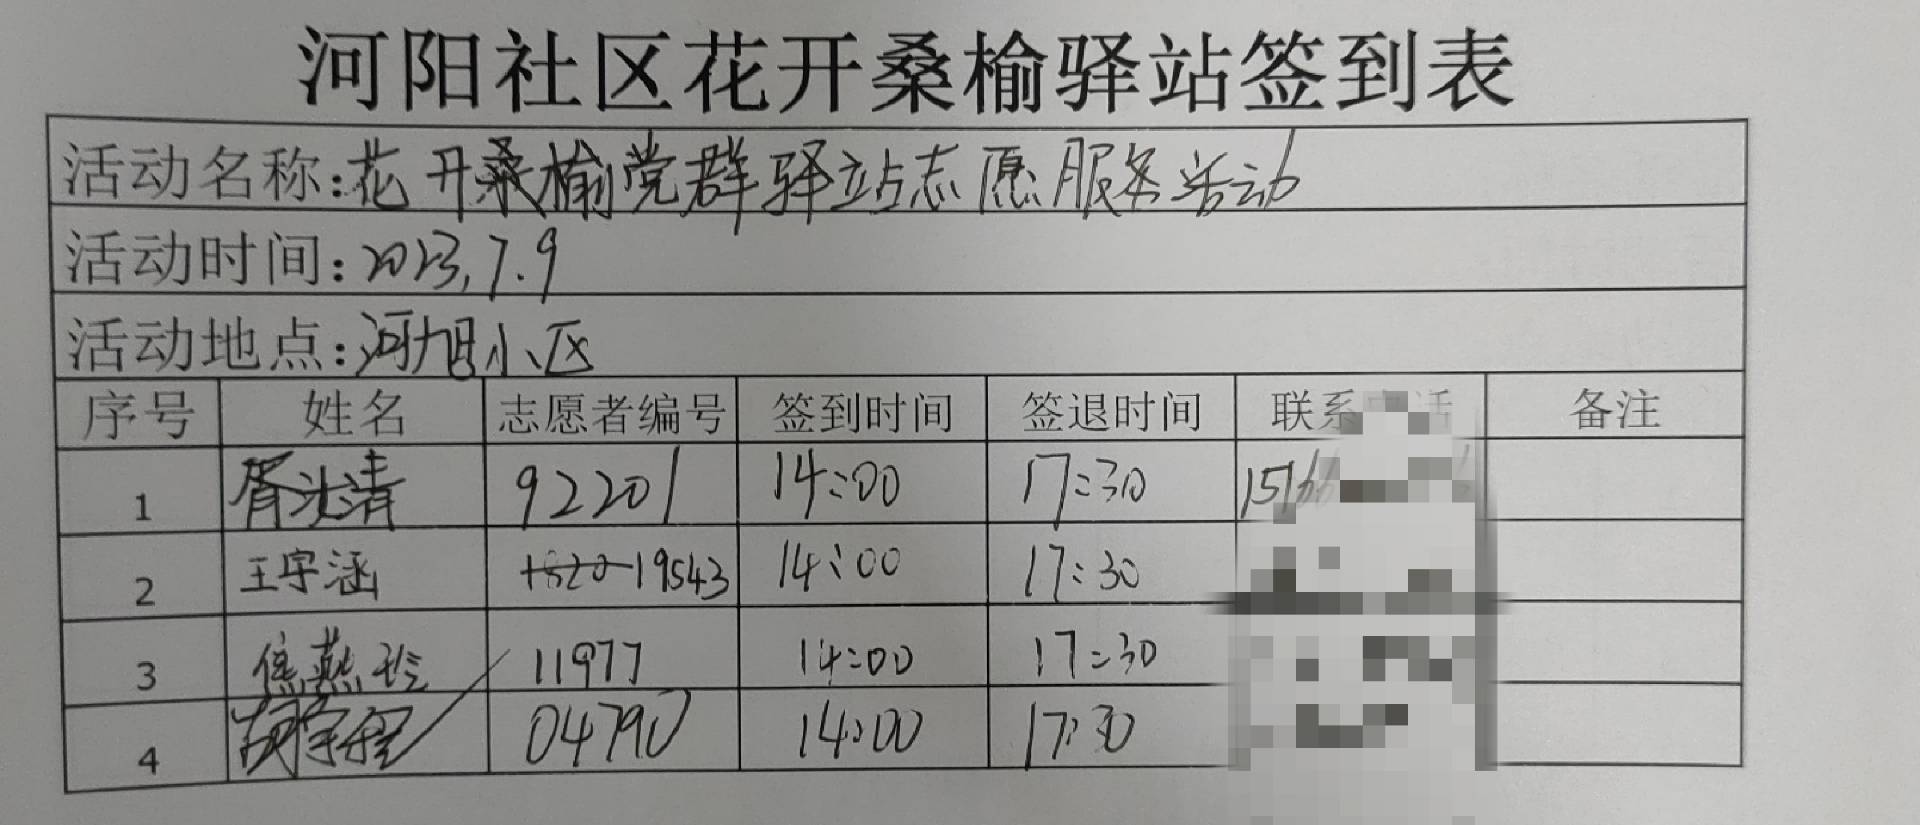 河阳社区花开桑榆驿站签到表
活动名称:花开桑榆党群驿站志愿服务活动
活动时间:2023.7.9
活动地点:河旭小区
序号 姓名 志愿者编号 签到时间 签退时间 联系电话 备注
1 92201 14:00 17:30
2 王宇涵 19543 14:00 17:30
3 焦燕玲 11977 14:00 17:30
4 04790 14:00 17:30